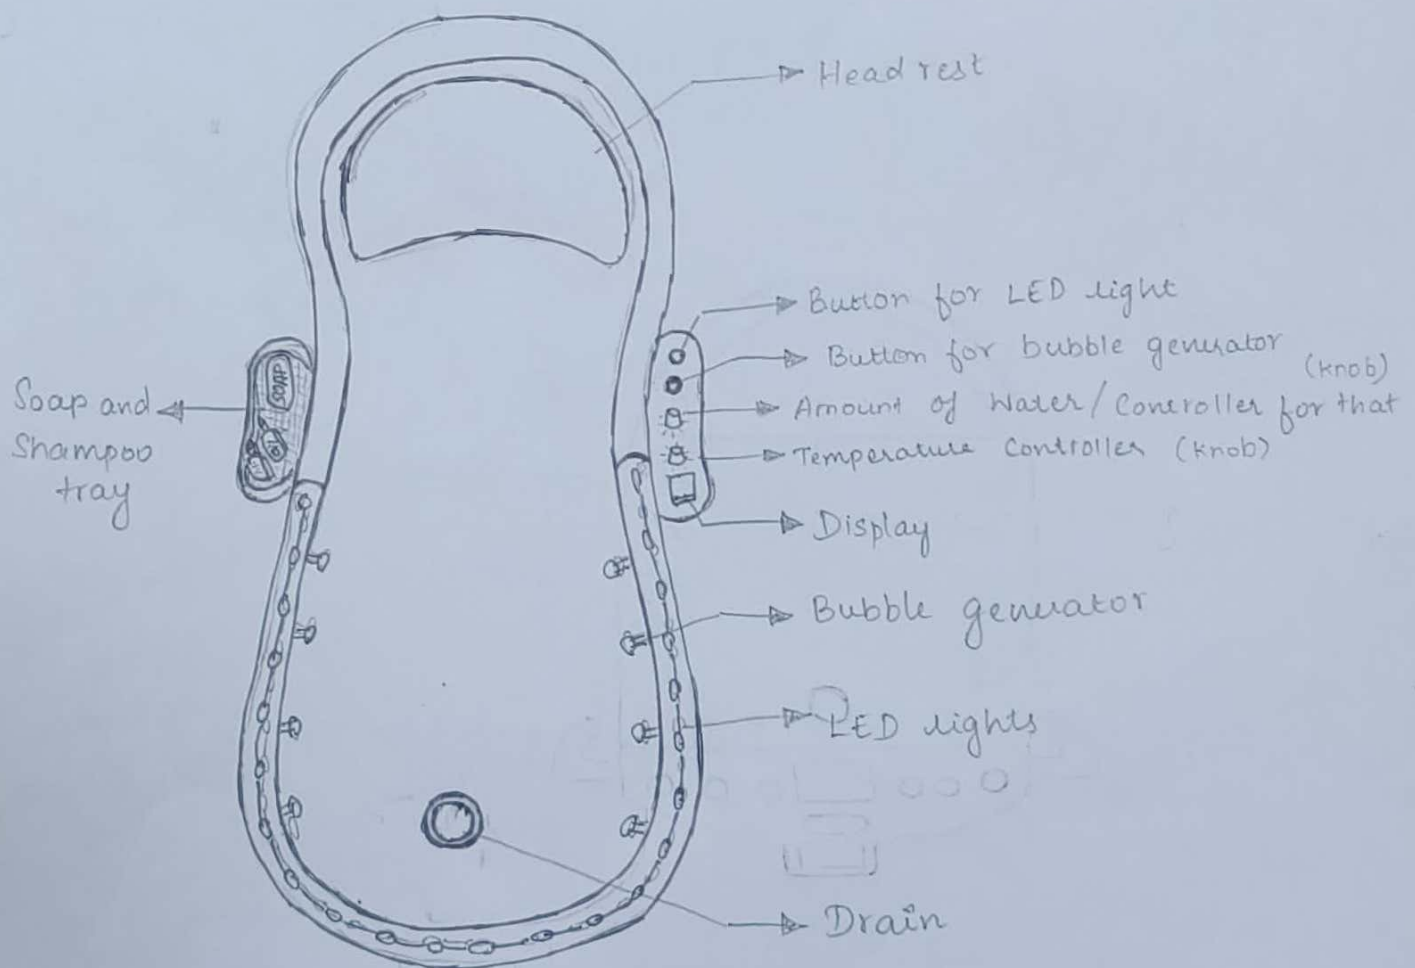 Head rest
Button for LED light
Button for bubble generator
(knob)
Amount of Water/Controller for that
Temperature Controller (knob)
Display
Bubble generator
LED lights
Drain
Soap and
Shampoo
tray
SOAP